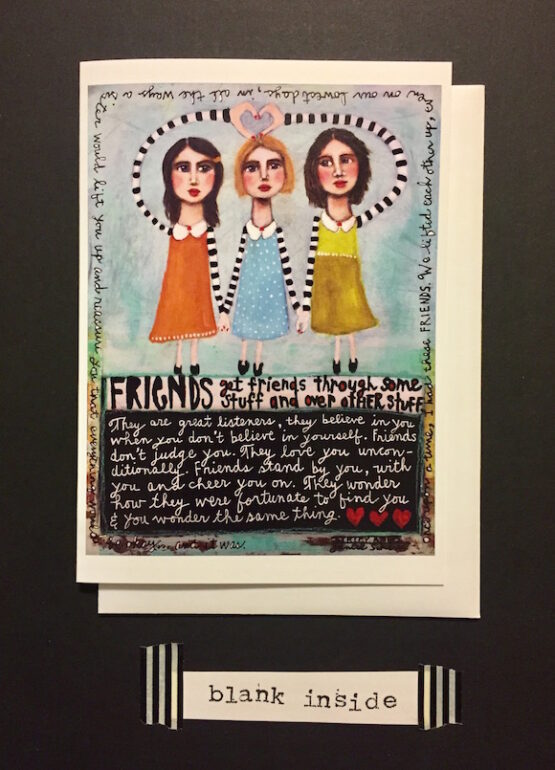 en on our lowest days, in all the ways a sis
ter would lift you up and
once upon a time, I had these FRIENDS. We lifted each other up, ev
FRIENDS get friends through some
stuff and over other stuff
They are great listeners, they believe in you
when you don't believe in yourself. Friends
don't judge you. They love you uncon-
ditionally. Friends stand by you, with
you and cheer you on. They wonder
how they were fortunate to find you
& you wonder the same thing.
blank inside